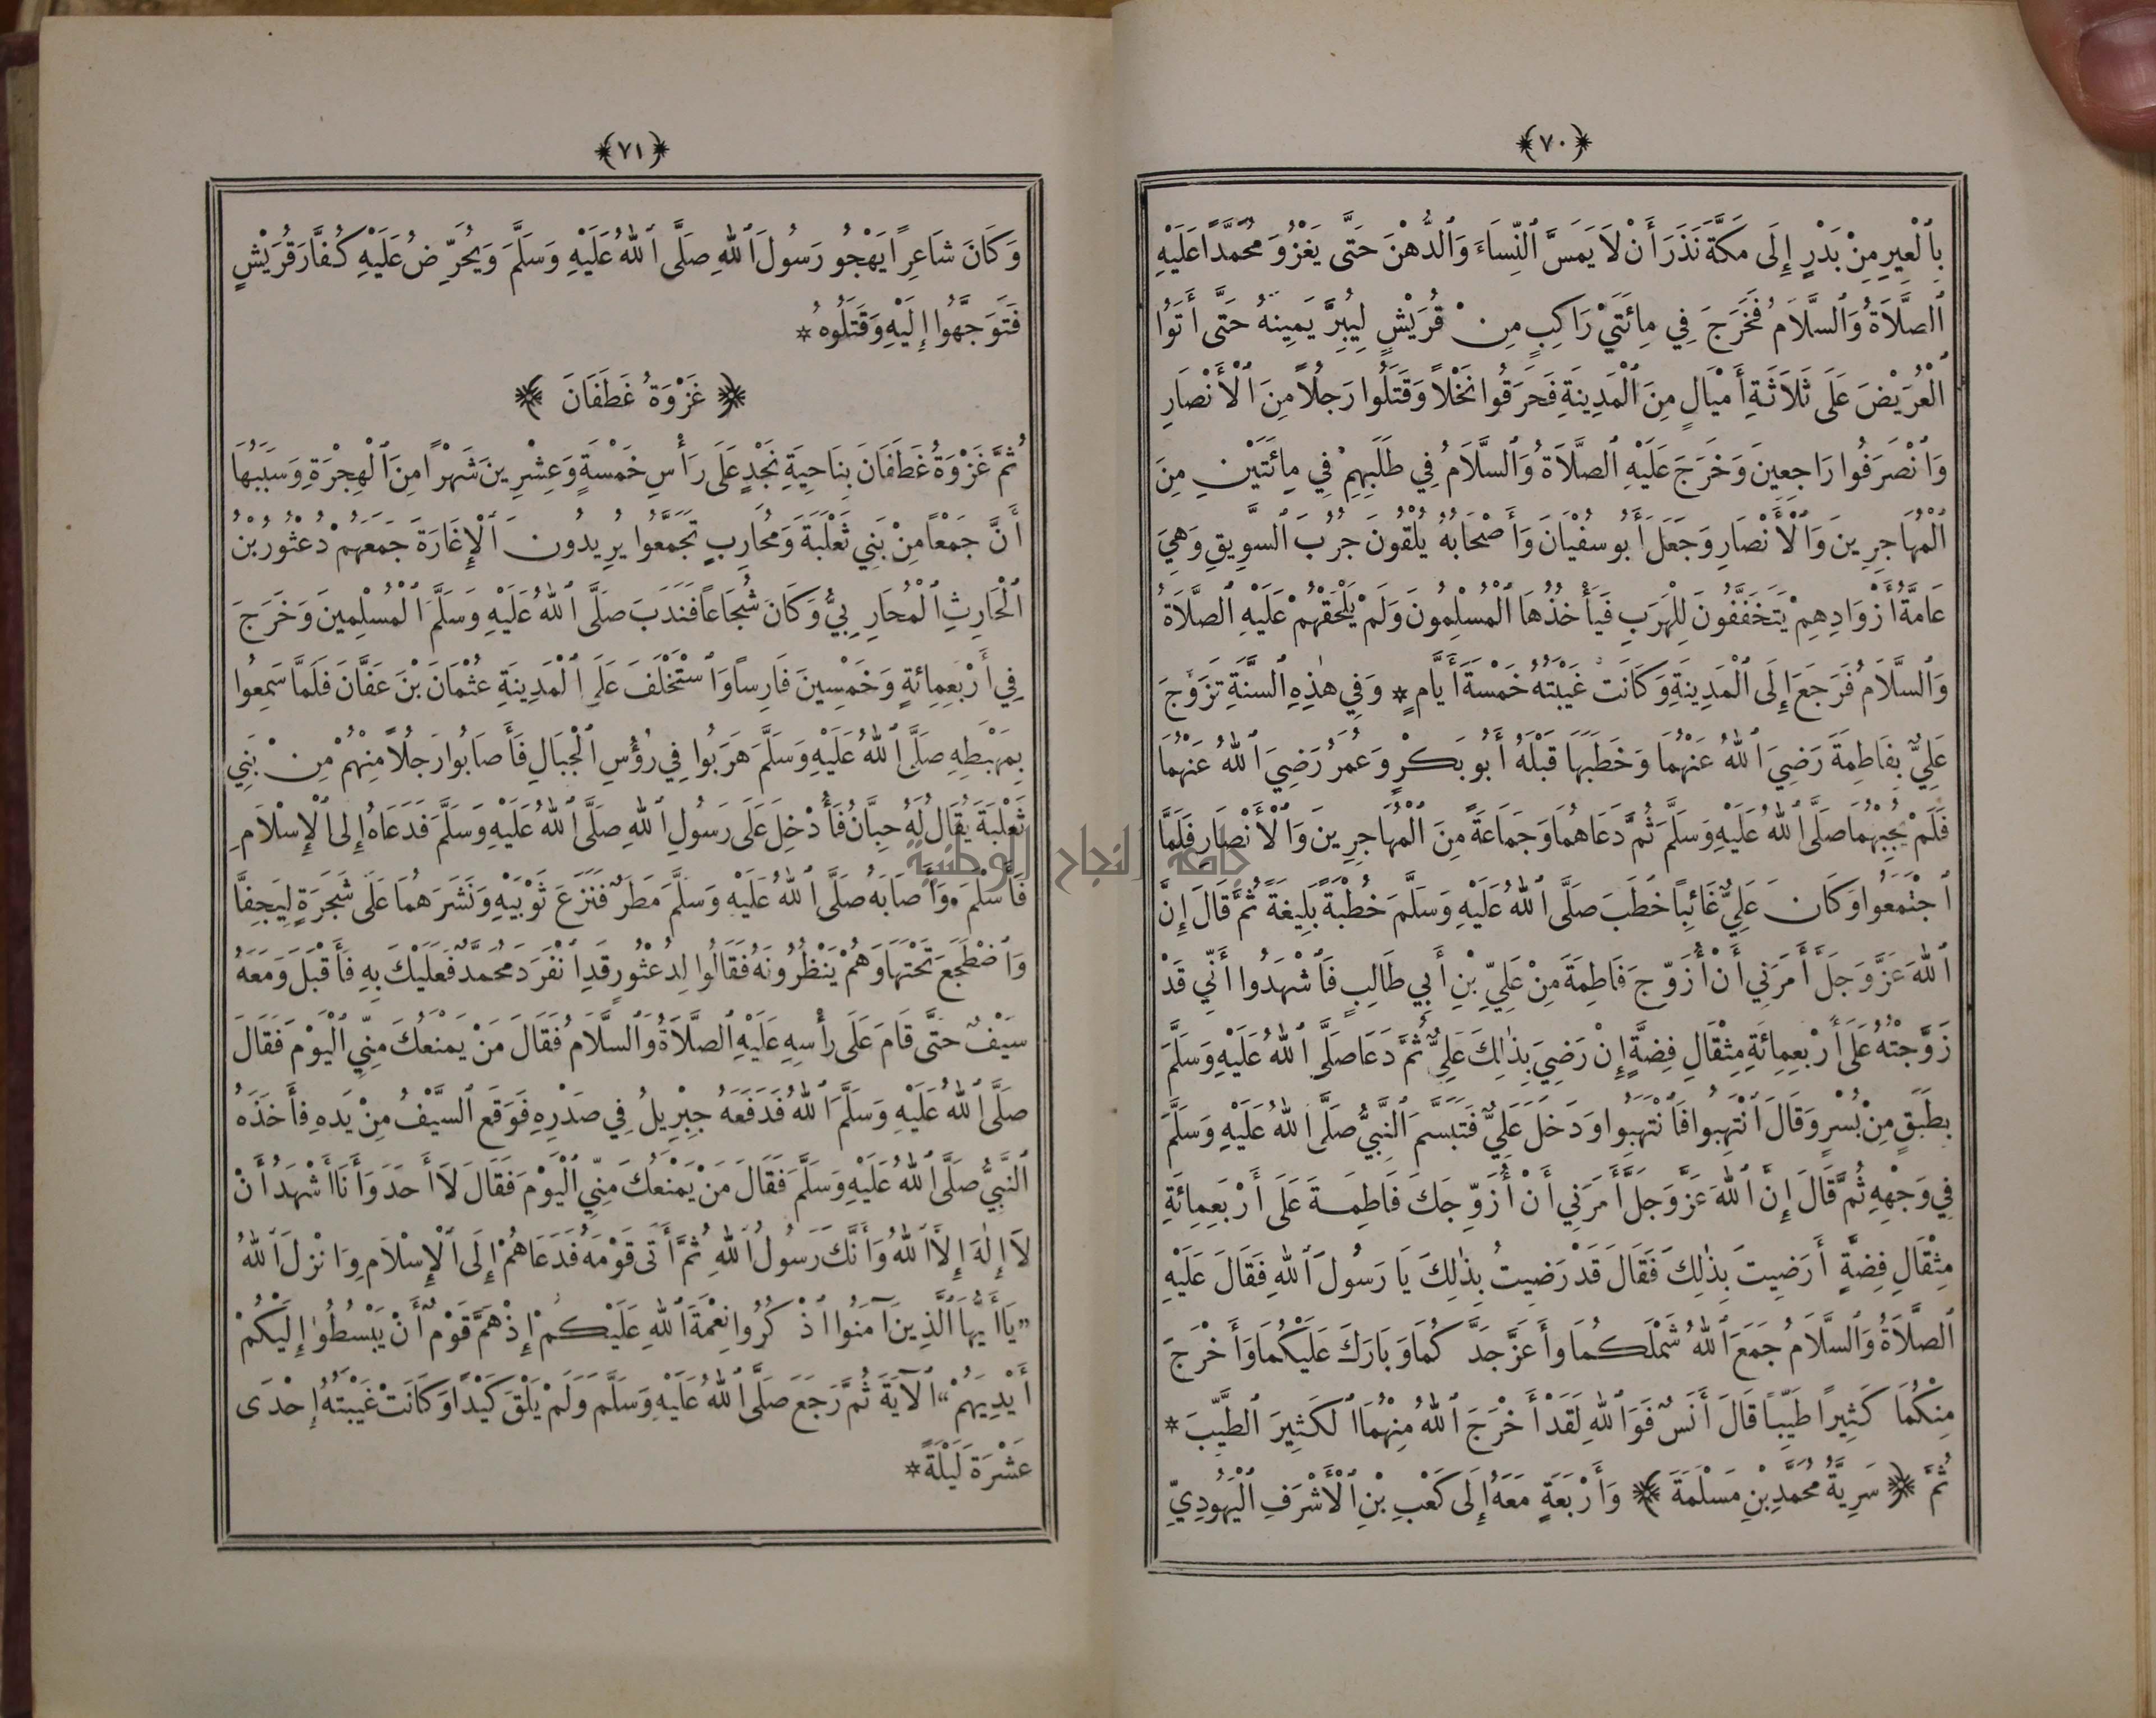 ﴿٧٠﴾
بِٱلْعِيرِ مِنْ بَدْرٍ إِلَى مَكَّةَ نَذَرَ أَنْ لاَ يَمَسَّ ٱلنِّسَاءَ وَٱلدُّهْنَ حَتَّى يَغْزُوَ مُحَمَّدًا عَلَيْهِ
ٱلصَّلاَةُ وَٱلسَّلاَمُ فَخَرَجَ فِي مِائَتَيْ رَاكِبٍ مِنْ قُرَيْشٍ لِيُبِرَّ يَمِينَهُ حَتَّى أَتَوُا
ٱلْعُرَيْضَ عَلَى ثَلاَثَةِ أَمْيَالٍ مِنَ ٱلْمَدِينَةِ فَحَرَقُوا نَخْلاً وَقَتَلُوا رَجُلاً مِنَ ٱلْأَنْصَارِ
وَٱنْصَرَفُوا رَاجِعِينَ وَخَرَجَ عَلَيْهِ ٱلصَّلاَةُ وَٱلسَّلاَمُ فِي طَلَبِهِمْ فِي مِائَتَيْنِ مِنَ
ٱلْمُهَاجِرِينَ وَٱلْأَنْصَارِ وَجَعَلَ أَبُو سُفْيَانَ وَأَصْحَابُهُ يُلْقُونَ جُرُبَ ٱلسَّوِيقِ وَهِيَ
عَامَّةُ أَزْوَادِهِمْ يَتَخَفَّفُونَ لِلْهَرَبِ فَيَأْخُذُهَا ٱلْمُسْلِمُونَ وَلَمْ يَلْحَقْهُمْ عَلَيْهِ ٱلصَّلاَةُ
وَٱلسَّلاَمُ فَرَجَعَ إِلَى ٱلْمَدِينَةِ وَكَانَتْ غَيْبَتُهُ خَمْسَةَ أَيَّامٍ * وَفِي هٰذِهِ ٱلسَّنَةِ تَزَوَّجَ
عَلِيٌّ بِفَاطِمَةَ رَضِيَ ٱللهُ عَنْهُمَا وَخَطَبَهَا قَبْلَهُ أَبُو بَكْرٍ وَعُمَرُ رَضِيَ ٱللهُ عَنْهُمَا
فَلَمْ يُجِبْهُمَا صَلَّى ٱللهُ عَلَيْهِ وَسَلَّمَ ثُمَّ دَعَاهُمَا وَجَمَاعَةً مِنَ ٱلْمُهَاجِرِينَ وَٱلْأَنْصَارِ فَلَمَّا
ٱجْتَمَعُوا وَكَانَ عَلِيٌّ غَائِبًا خَطَبَ صَلَّى ٱللهُ عَلَيْهِ وَسَلَّمَ خُطْبَةً بَلِيغَةً ثُمَّ قَالَ إِنَّ
ٱللهَ عَزَّ وَجَلَّ أَمَرَنِي أَنْ أُزَوِّجَ فَاطِمَةَ مِنْ عَلِيِّ بْنِ أَبِي طَالِبٍ فَٱشْهَدُوا أَنِّي قَدْ
زَوَّجْتُهُ عَلَى أَرْبَعِمِائَةِ مِثْقَالِ فِضَّةٍ إِنْ رَضِيَ بِذٰلِكَ عَلِيٌّ ثُمَّ دَعَا صَلَّى ٱللهُ عَلَيْهِ وَسَلَّمَ
بِطَبَقٍ مِنْ بُسْرٍ وَقَالَ ٱنْتَهِبُوا فَٱنْتَهَبُوا وَدَخَلَ عَلِيٌّ فَتَبَسَّمَ ٱلنَّبِيُّ صَلَّى ٱللهُ عَلَيْهِ وَسَلَّمَ
فِي وَجْهِهِ ثُمَّ قَالَ إِنَّ ٱللهَ عَزَّ وَجَلَّ أَمَرَنِي أَنْ أُزَوِّجَكَ فَاطِمَةَ عَلَى أَرْبَعِمِائَةِ
مِثْقَالِ فِضَّةٍ أَرَضِيتَ بِذٰلِكَ فَقَالَ قَدْ رَضِيتُ بِذٰلِكَ يَا رَسُولَ ٱللهِ فَقَالَ عَلَيْهِ
ٱلصَّلاَةُ وَٱلسَّلاَمُ جَمَعَ ٱللهُ شَمْلَكُمَا وَأَعَزَّ جَدَّكُمَا وَبَارَكَ عَلَيْكُمَا وَأَخْرَجَ
مِنْكُمَا كَثِيرًا طَيِّبًا قَالَ أَنَسٌ فَوَٱللهِ لَقَدْ أَخْرَجَ ٱللهُ مِنْهُمَا ٱلْكَثِيرَ ٱلطَّيِّبَ *
ثُمَّ ﴿ سَرِيَّةُ مُحَمَّدِ بْنِ مَسْلَمَةَ ﴾ وَأَرْبَعَةٍ مَعَهُ إِلَى كَعْبِ بْنِ ٱلْأَشْرَفِ ٱلْيَهُودِيِّ
﴿٧١﴾
وَكَانَ شَاعِرًا يَهْجُو رَسُولَ ٱللهِ صَلَّى ٱللهُ عَلَيْهِ وَسَلَّمَ وَيُحَرِّضُ عَلَيْهِ كُفَّارَ قُرَيْشٍ
فَتَوَجَّهُوا إِلَيْهِ وَقَتَلُوهُ *
﴿ غَزْوَةُ غَطَفَانَ ﴾
ثُمَّ غَزْوَةُ غَطَفَانَ بِنَاحِيَةِ نَجْدٍ عَلَى رَأْسِ خَمْسَةٍ وَعِشْرِينَ شَهْرًا مِنَ ٱلْهِجْرَةِ وَسَبَبُهَا
أَنَّ جَمْعًا مِنْ بَنِي ثَعْلَبَةَ وَمُحَارِبٍ تَجَمَّعُوا يُرِيدُونَ ٱلْإِغَارَةَ جَمَعَهُمْ دُعْثُورُ بْنُ
ٱلْحَارِثِ ٱلْمُحَارِبِيُّ وَكَانَ شُجَاعًا فَنَدَبَ صَلَّى ٱللهُ عَلَيْهِ وَسَلَّمَ ٱلْمُسْلِمِينَ وَخَرَجَ
فِي أَرْبَعِمِائَةٍ وَخَمْسِينَ فَارِسًا وَٱسْتَخْلَفَ عَلَى ٱلْمَدِينَةِ عُثْمَانَ بْنَ عَفَّانَ فَلَمَّا سَمِعُوا
بِمَهْبَطِهِ صَلَّى ٱللهُ عَلَيْهِ وَسَلَّمَ هَرَبُوا فِي رُؤُسِ ٱلْجِبَالِ فَأَصَابُوا رَجُلاً مِنْهُمْ مِنْ بَنِي
ثَعْلَبَةَ يُقَالُ لَهُ حِبَّانُ فَأُدْخِلَ عَلَى رَسُولِ ٱللهِ صَلَّى ٱللهُ عَلَيْهِ وَسَلَّمَ فَدَعَاهُ إِلَى ٱلْإِسْلاَمِ
فَأَسْلَمَ. وَأَصَابَهُ صَلَّى ٱللهُ عَلَيْهِ وَسَلَّمَ مَطَرٌ فَنَزَعَ ثَوْبَيْهِ وَنَشَرَهُمَا عَلَى شَجَرَةٍ لِيَجِفَّا
وَٱضْطَجَعَ تَحْتَهَا وَهُمْ يَنْظُرُونَهُ فَقَالُوا لِدُعْثُورٍ قَدِ ٱنْفَرَدَ مُحَمَّدٌ فَعَلَيْكَ بِهِ فَأَقْبَلَ وَمَعَهُ
سَيْفٌ حَتَّى قَامَ عَلَى رَأْسِهِ عَلَيْهِ ٱلصَّلاَةُ وَٱلسَّلاَمُ فَقَالَ مَنْ يَمْنَعُكَ مِنِّي ٱلْيَوْمَ فَقَالَ
صَلَّى ٱللهُ عَلَيْهِ وَسَلَّمَ ٱللهُ فَدَفَعَهُ جِبْرِيلُ فِي صَدْرِهِ فَوَقَعَ ٱلسَّيْفُ مِنْ يَدِهِ فَأَخَذَهُ
ٱلنَّبِيُّ صَلَّى ٱللهُ عَلَيْهِ وَسَلَّمَ فَقَالَ مَنْ يَمْنَعُكَ مِنِّي ٱلْيَوْمَ فَقَالَ لاَ أَحَدَ وَأَنَا أَشْهَدُ أَنْ
لاَ إِلٰهَ إِلاَّ ٱللهُ وَأَنَّكَ رَسُولُ ٱللهِ ثُمَّ أَتَى قَوْمَهُ فَدَعَاهُمْ إِلَى ٱلْإِسْلاَمِ وَأَنْزَلَ ٱللهُ
”يَا أَيُّهَا ٱلَّذِينَ آمَنُوا ٱذْكُرُوا نِعْمَةَ ٱللهِ عَلَيْكُمْ إِذْ هَمَّ قَوْمٌ أَنْ يَبْسُطُوا إِلَيْكُمْ
أَيْدِيَهُمْ“ ٱلْآيَةَ ثُمَّ رَجَعَ صَلَّى ٱللهُ عَلَيْهِ وَسَلَّمَ وَلَمْ يَلْقَ كَيْدًا وَكَانَتْ غَيْبَتُهُ إِحْدَى
عَشْرَةَ لَيْلَةً *
جامعة النجاح الوطنية